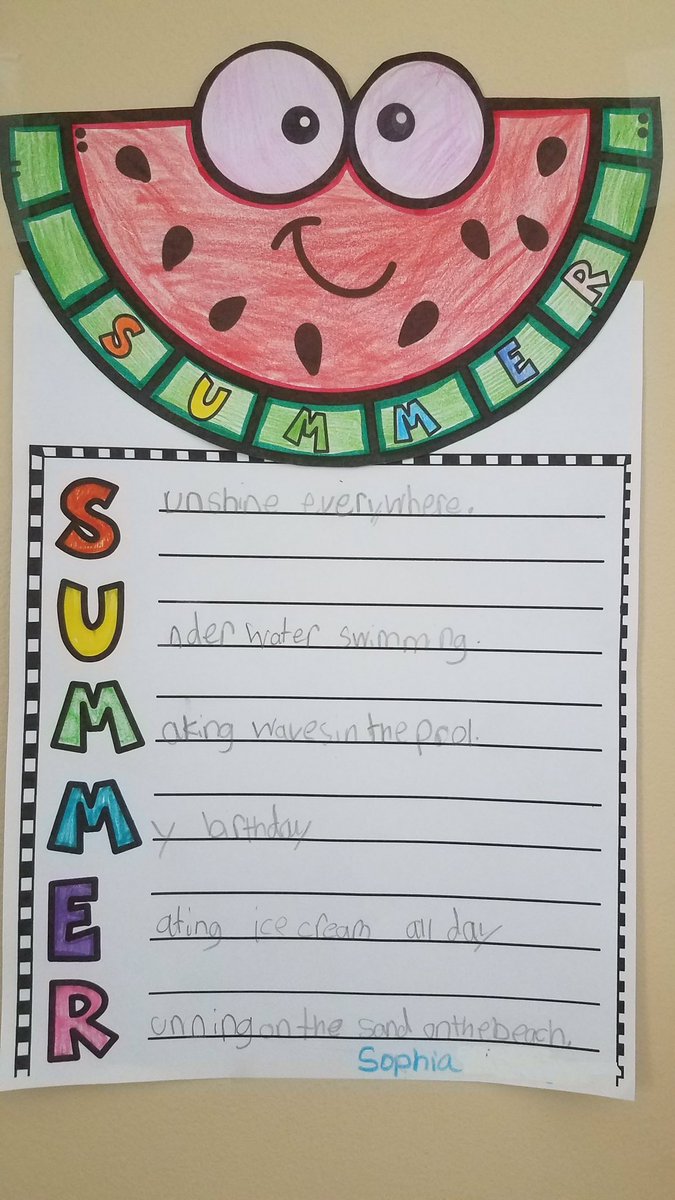 SUMMER
Sunshine everywhere.
Under water swimming.
Making waves in the pool.
My birthday
Eating ice cream all day
Running on the sand on the beach.
Sophia